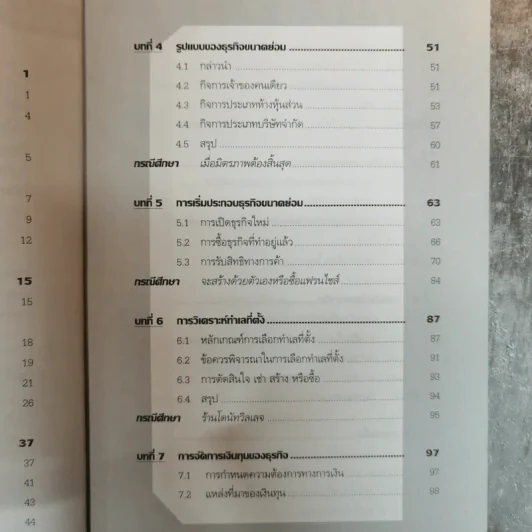 1
1
4
5
7
9
12
15
15
18
19
21
26
37
37
41
43
44
บทที่ 4 รูปแบบของธุรกิจขนาดย่อม 51
4.1 กล่าวนำ 51
4.2 กิจการเจ้าของคนเดียว 51
4.3 กิจการประเภทห้างหุ้นส่วน 53
4.4 กิจการประเภทบริษัทจำกัด 57
4.5 สรุป 60
กรณีศึกษา เมื่อมิตรภาพต้องสิ้นสุด 61
บทที่ 5 การเริ่มประกอบธุรกิจขนาดย่อม 63
5.1 การเปิดธุรกิจใหม่ 63
5.2 การซื้อธุรกิจที่ทำอยู่แล้ว 66
5.3 การรับสิทธิทางการค้า 70
กรณีศึกษา จะสร้างด้วยตัวเองหรือซื้อแฟรนไชส์ 84
บทที่ 6 การวิเคราะห์ทำเลที่ตั้ง 87
6.1 หลักเกณฑ์การเลือกทำเลที่ตั้ง 87
6.2 ข้อควรพิจารณาในการเลือกทำเลที่ตั้ง 91
6.3 การตัดสินใจ เช่า สร้าง หรือซื้อ 93
6.4 สรุป 94
กรณีศึกษา ร้านโดนัทวิลเลจ 95
บทที่ 7 การจัดการเงินทุนของธุรกิจ 97
7.1 การกำหนดความต้องการทางการเงิน 97
7.2 แหล่งที่มาของเงินทุน 98